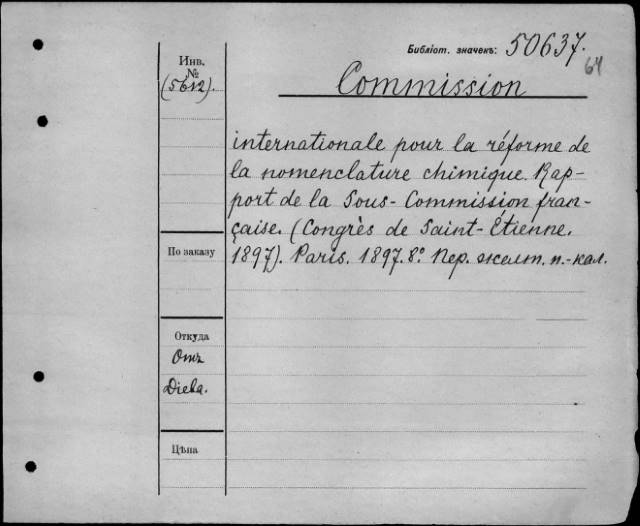 Библіот. значекъ: 50637.
64
Инв.
№
(5612).
Commission
internationale pour la réforme de
la nomenclature chimique. Rap-
port de la Sous-Commission fran-
çaise. (Congrès de Saint-Etienne.
1897). Paris. 1897. 8º. Пер. желт. п.-кал.
По заказу
Откуда
Отъ
Діева.
Цѣна